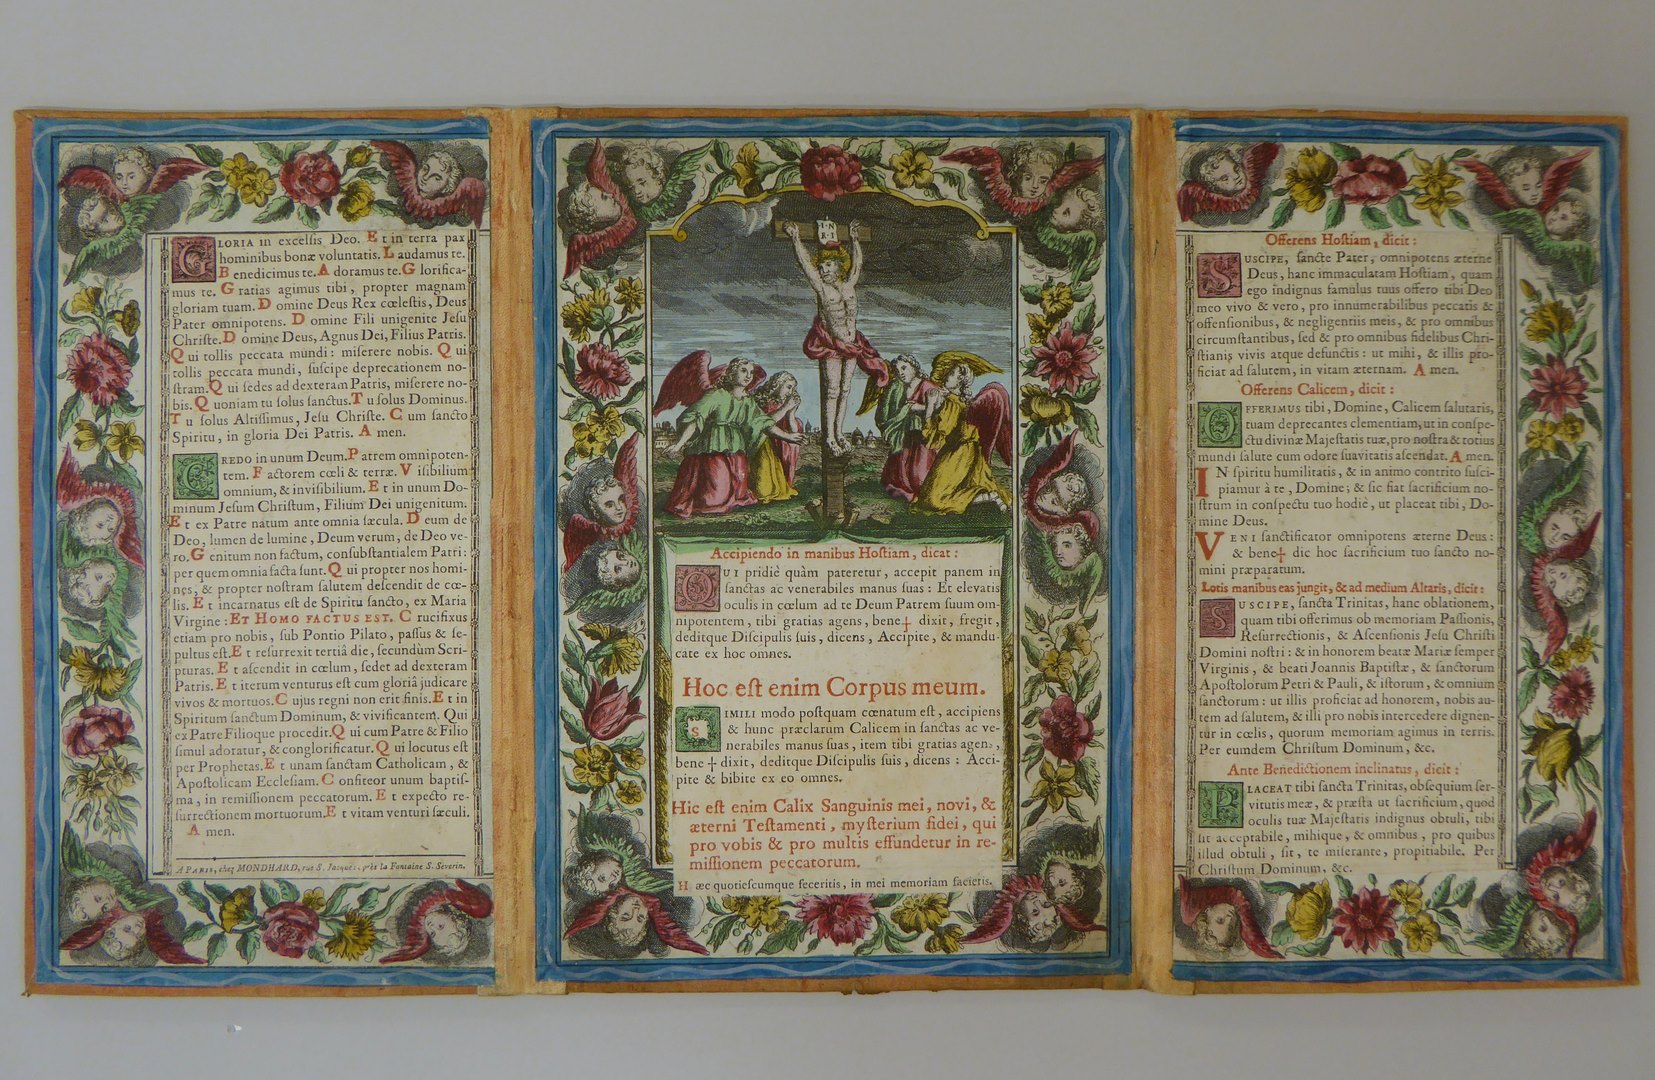 GLORIA in excelsis Deo. Et in terra pax
hominibus bonæ voluntatis. Laudamus te.
Benedicimus te. Adoramus te. Glorifica-
mus te. Gratias agimus tibi, propter magnam
gloriam tuam. Domine Deus Rex cœlestis, Deus
Pater omnipotens. Domine Fili unigenite Jesu
Christe. Domine Deus, Agnus Dei, Filius Patris.
Qui tollis peccata mundi: miserere nobis. Qui
tollis peccata mundi, suscipe deprecationem no-
stram. Qui sedes ad dexteram Patris, miserere no-
bis. Quoniam tu solus sanctus. Tu solus Dominus.
Tu solus Altissimus, Jesu Christe. Cum sancto
Spiritu, in gloria Dei Patris. Amen.
CREDO in unum Deum. Patrem omnipoten-
tem. Factorem cœli & terræ. Visibilium
omnium, & invisibilium. Et in unum Do-
minum Jesum Christum, Filium Dei unigenitum.
Et ex Patre natum ante omnia sæcula. Deum de
Deo, lumen de lumine, Deum verum, de Deo ve-
ro. Genitum non factum, consubstantialem Patri:
per quem omnia facta sunt. Qui propter nos homi-
nes, & propter nostram salutem descendit de cœ-
lis. Et incarnatus est de Spiritu sancto, ex Maria
Virgine: ET HOMO FACTUS EST. Crucifixus
etiam pro nobis, sub Pontio Pilato, passus & se-
pultus est. Et resurrexit tertiâ die, secundùm Scri-
pturas. Et ascendit in cœlum, sedet ad dexteram
Patris. Et iterum venturus est cum gloriâ judicare
vivos & mortuos. Cujus regni non erit finis. Et in
Spiritum sanctum Dominum, & vivificantem. Qui
ex Patre Filioque procedit. Qui cum Patre & Filio
simul adoratur, & conglorificatur. Qui locutus est
per Prophetas. Et unam sanctam Catholicam, &
Apostolicam Ecclesiam. Confiteor unum baptis-
ma, in remissionem peccatorum. Et expecto re-
surrectionem mortuorum. Et vitam venturi sæculi.
Amen.
A PARIS, chez MONDHARD, rue S. Jacques, près la Fontaine S. Severin.
I·N
R·I
Accipiendo in manibus Hostiam, dicat:
QUI pridiè quàm pateretur, accepit panem in
sanctas ac venerabiles manus suas: Et elevatis
oculis in cœlum ad te Deum Patrem suum om-
nipotentem, tibi gratias agens, bene † dixit, fregit,
deditque Discipulis suis, dicens, Accipite, & mandu-
cate ex hoc omnes.
Hoc est enim Corpus meum.
SIMILI modo postquam cœnatum est, accipiens
& hunc præclarum Calicem in sanctas ac ve-
nerabiles manus suas, item tibi gratias agens,
bene † dixit, deditque Discipulis suis, dicens: Acci-
pite & bibite ex eo omnes.
Hic est enim Calix Sanguinis mei, novi, &
æterni Testamenti, mysterium fidei, qui
pro vobis & pro multis effundetur in re-
missionem peccatorum.
Hæc quotiescumque feceritis, in mei memoriam facietis.
Offerens Hostiam, dicit:
SUSCIPE, sancte Pater, omnipotens æterne
Deus, hanc immaculatam Hostiam, quam
ego indignus famulus tuus offero tibi Deo
meo vivo & vero, pro innumerabilibus peccatis &
offensionibus, & negligentiis meis, & pro omnibus
circumstantibus, sed & pro omnibus fidelibus Chri-
stianis vivis atque defunctis: ut mihi, & illis pro-
ficiat ad salutem, in vitam æternam. Amen.
Offerens Calicem, dicit:
OFFERIMUS tibi, Domine, Calicem salutaris,
tuam deprecantes clementiam, ut in conspe-
ctu divinæ Majestatis tuæ, pro nostra & totius
mundi salute cum odore suavitatis ascendat. Amen.
IN spiritu humilitatis, & in animo contrito susci-
piamur à te, Domine; & sic fiat sacrificium no-
strum in conspectu tuo hodiè, ut placeat tibi, Do-
mine Deus.
VENI sanctificator omnipotens æterne Deus:
& bene † dic hoc sacrificium tuo sancto no-
mini præparatum.
Lotis manibus eas jungit, & ad medium Altaris, dicit:
SUSCIPE, sancta Trinitas, hanc oblationem,
quam tibi offerimus ob memoriam Passionis,
Resurrectionis, & Ascensionis Jesu Christi
Domini nostri: & in honorem beatæ Mariæ semper
Virginis, & beati Joannis Baptistæ, & sanctorum
Apostolorum Petri & Pauli, & istorum, & omnium
sanctorum: ut illis proficiat ad honorem, nobis au-
tem ad salutem, & illi pro nobis intercedere dignen-
tur in cœlis, quorum memoriam agimus in terris.
Per eumdem Christum Dominum, &c.
Ante Benedictionem inclinatus, dicit:
PLACEAT tibi sancta Trinitas, obsequium ser-
vitutis meæ, & præsta ut sacrificium, quod
oculis tuæ Majestatis indignus obtuli, tibi
sit acceptabile, mihique, & omnibus, pro quibus
illud obtuli, sit, te miserante, propitiabile. Per
Christum Dominum, &c.